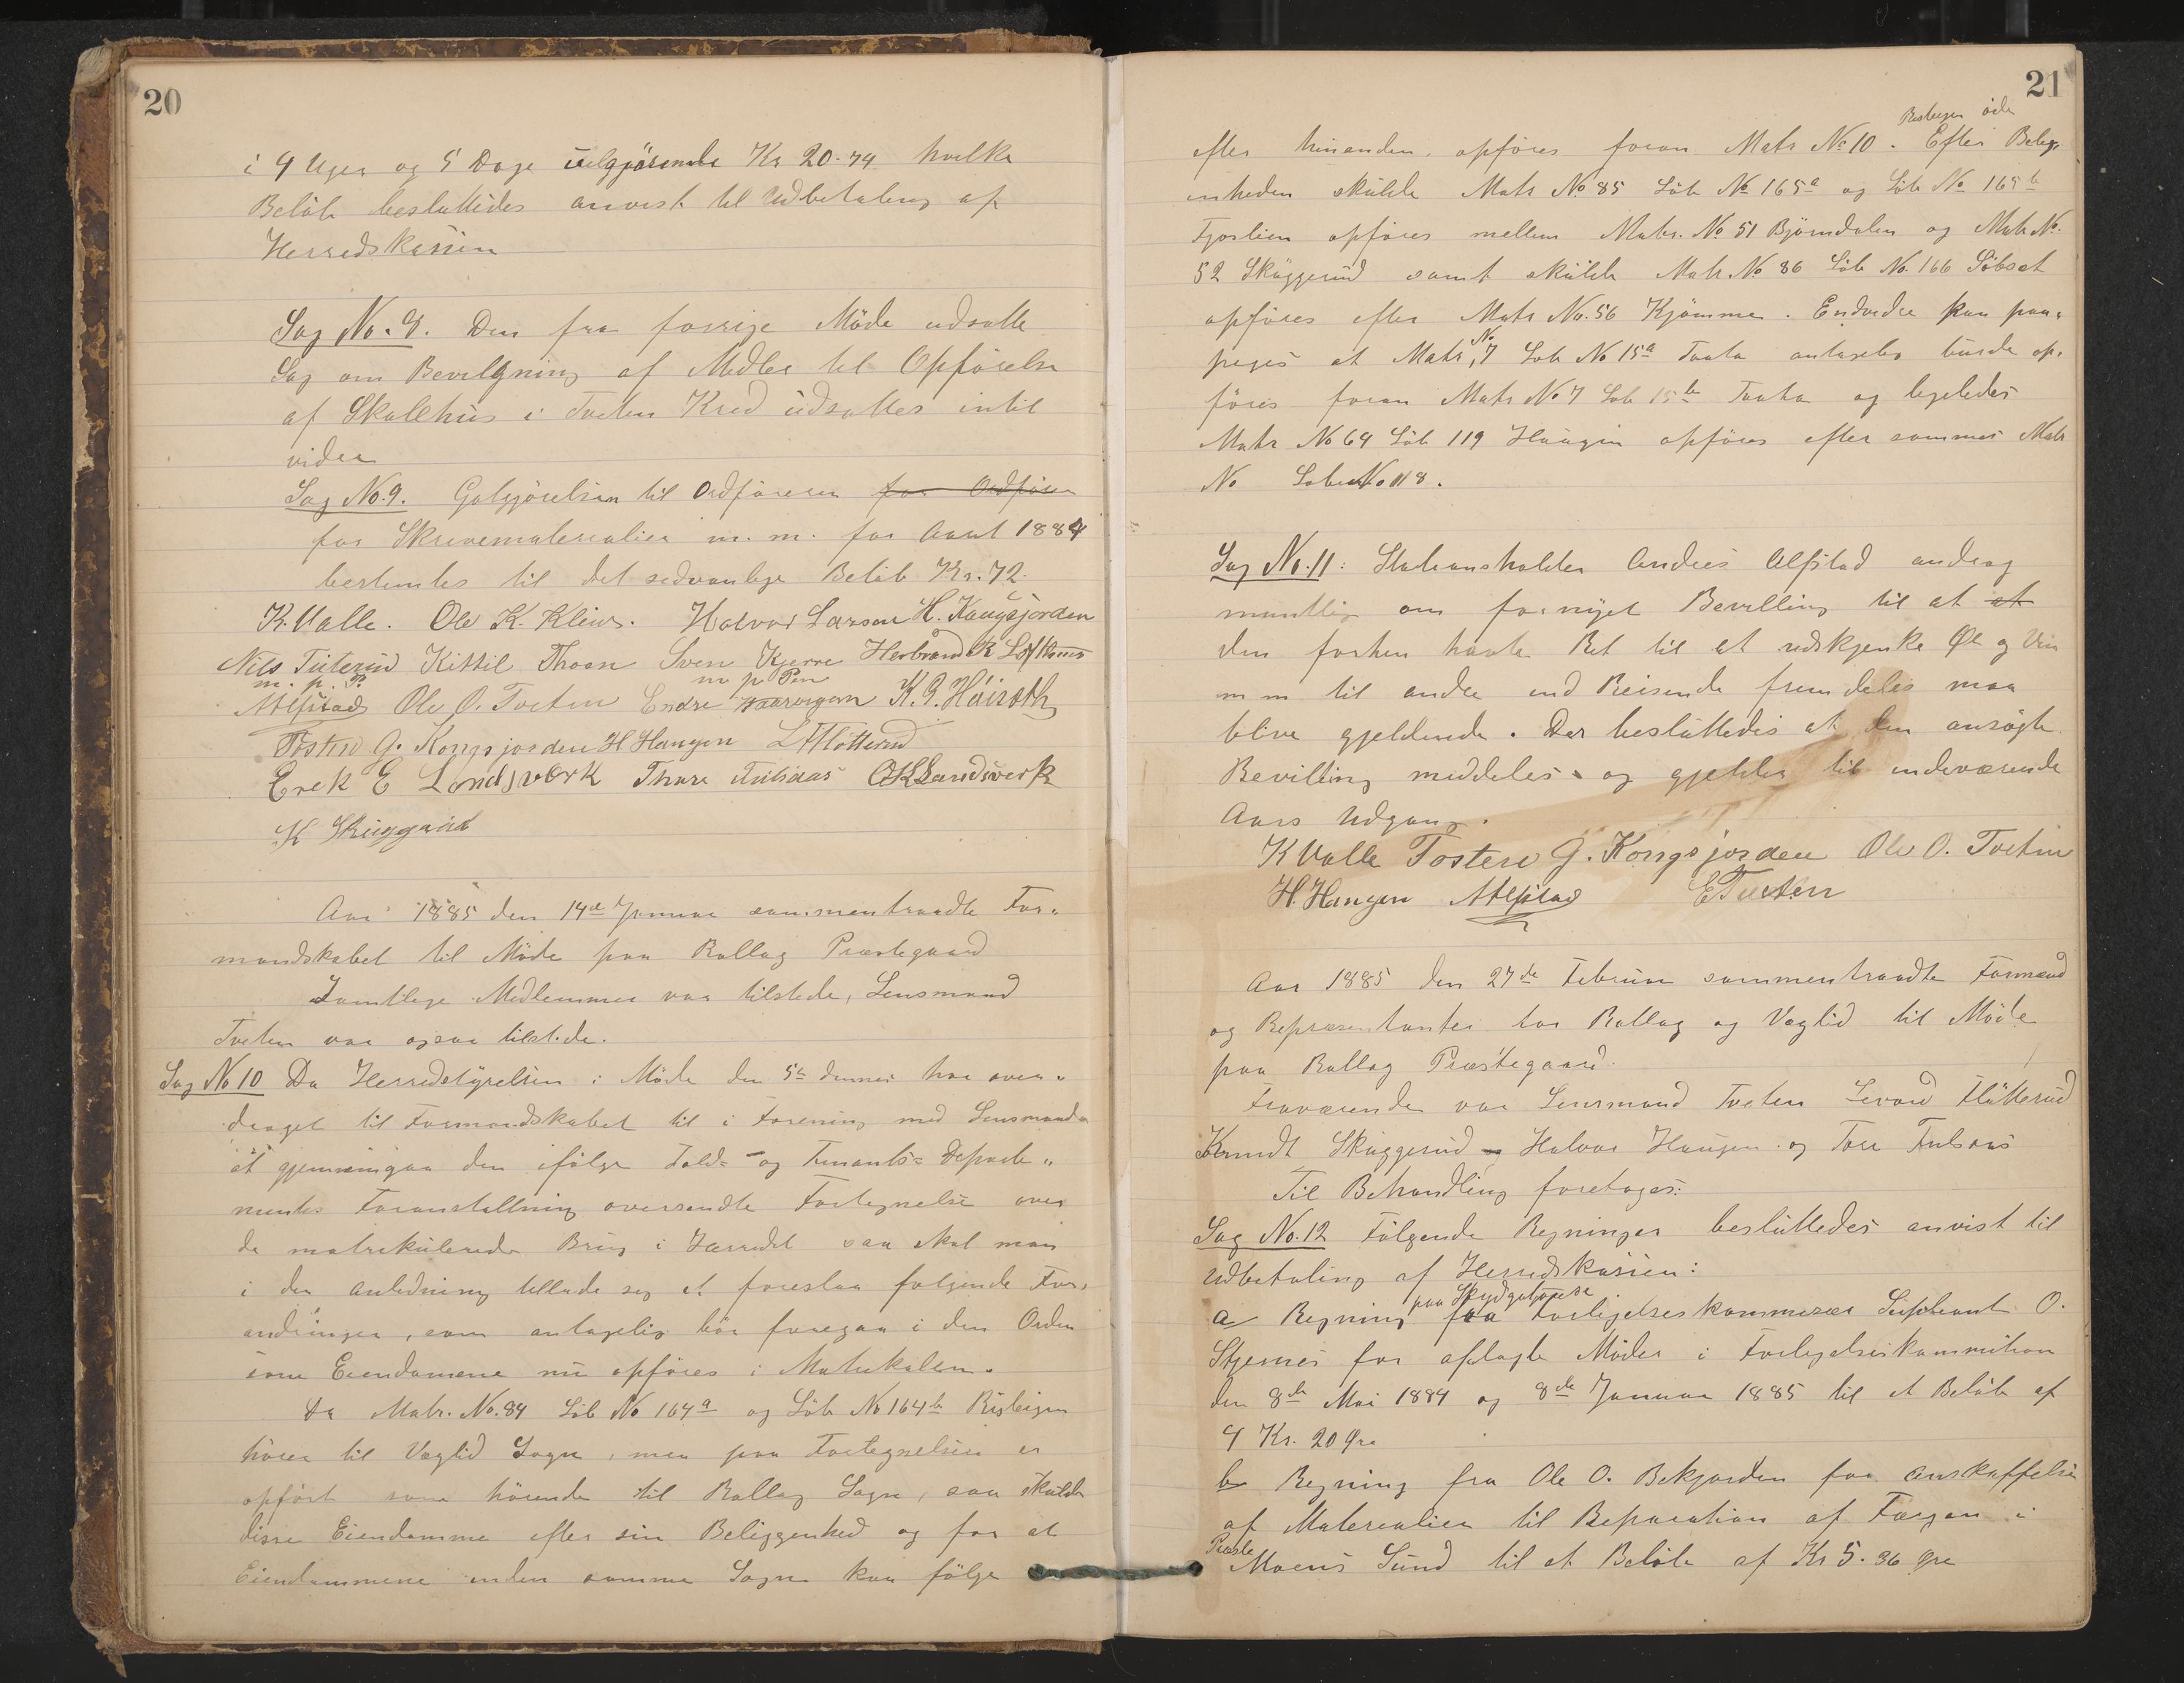 20
i 4 Uger og 5 Dage udgjörende Kr 20.74 hvilke
Belöb besluttedes anvist til Udbetaling af
Herredskassen
Sag No. 8. Den fra forrige Möde udsatte
Sag om Bevilgning af Midler til Opförelse
af Skolehus i Tveten Kred udsattes intil
videre
Sag No. 9. Godgjörelsen til Ordföreren for Ordförer
for Skrivematerialier m. m. for Aaret 1884
bestemtes til det sedvanlige Belöb Kr. 72.
K. Valle. Ole K. Kleivs. Halvor Larsen H. Kongsjorden
Nils Tuterud Kittil Thoen Sven Kjerre Herbrand K
m. p. P. m p Pen
Alfstad Ole O. Tveten Endre K. G.
Tosten G. Kongsjorden H Haugen L Flötterud
Erek E Landsverk Thore Fulsaas O K Landsverk
K Skuggerud
Aar 1885 den 14de Januar sammentraadte For„
mandskabet til Möde paa Rollag Præstegaard
Samtlige Medlemmer var tilstede, Lensmand
Tveten var ogsaa tilstede.
Sag No 10 Da Herredstyrelsen i Möde den 5te dennes har over„
draget til Formandskabet til i Forening med Lensmanden
at gjennemgaa den ifölge Told= og Finants= Departe„
mentes Foranstaltning oversendte Fortegnelse over
de matrikulerede Brug i Herredet saa skal man
i den Anledning tillade sig at foreslaa folgende For„
andringer, som antagelig bör foregaa i den Orden
som Eiendomene nu opföres i Matrikulen.
Da Matr. No. 84 Löb No 164a og Löb No 164b Bisbergen
hörer til Væglid Sogn, men paa Fortegnelsen er
opfört som hörende til Rollag Sogn, saa skulde
disse Eiendomme efter sin Beliggenhed og for at
Eiendommene inden samme Sogn kan fölge
21
Bisbergen öde
efter hinanden, opföres foran Matr No 10. Efter Belig„
enheden skulde Matr No. 85 Löb No 165a og Löb No 165b
Fjoslien opföres mellem Matr. No 51 Björndalen og Matr No.
52 Skuggerud samt skulde Matr No 86 Löb No. 166 Söbset
opföres efter Matr No. 56 Kjömme. Endvidere kan paa„
peges at Matr No 7 Lob No 15a Traata antagelig burde op„
föres foran Matr No 7 Lob 15b Traata og ligeledes
Matr No 64 Löb 119 Haugen opföres efter sammes Matr
No Lobe No 118.
Sag No. 11: Stationsholder Anders Alfstad androg
muntlig om fornyet Bevilling til at at
den forhen havte Ret til at udskjenke Øl og Vin
m m til andre end Reisende fremdeles maa
blive gjeldende. Der besluttedes at den ansögte
Bevilling meddeles og gjelder til indeværende
Aars Udgang.
K Valle Tosten G. Kongsjorden Ole O. Tveten
H. Haugen Alfstad E Tveten
Aar 1885 den 27de Februar sammentraadte Formænd
og Repræsentanter for Rollag og Væglid til Möde
paa Rollag Præstegaard.
Fraværende var Lensmand Tveten Levord Flötterud
Knudt Skuggerud og Halvor Haugen og Tore Fulsaas
Til Behandling foretoges:
Sag No. 12 Fölgende Regninger besluttedes anvist til
Udbetaling af Herredskassen:
paa Skydsgodtgjörelse
a Regning fra Forligelseskommisær Supleant O.
Stjernes for aflagte Möder i Forligelseskommision
den 8de Mai 1884 og 8de Januar 1885 til et Belöb af
4 Kr. 20 Øre
b Regning fra Ole O. Bekjorden for Anskaffelse
af Materealier til Reparation af Færgen i
Præste
Moens Sund til et Belöb af Kr 5. 36 Øre